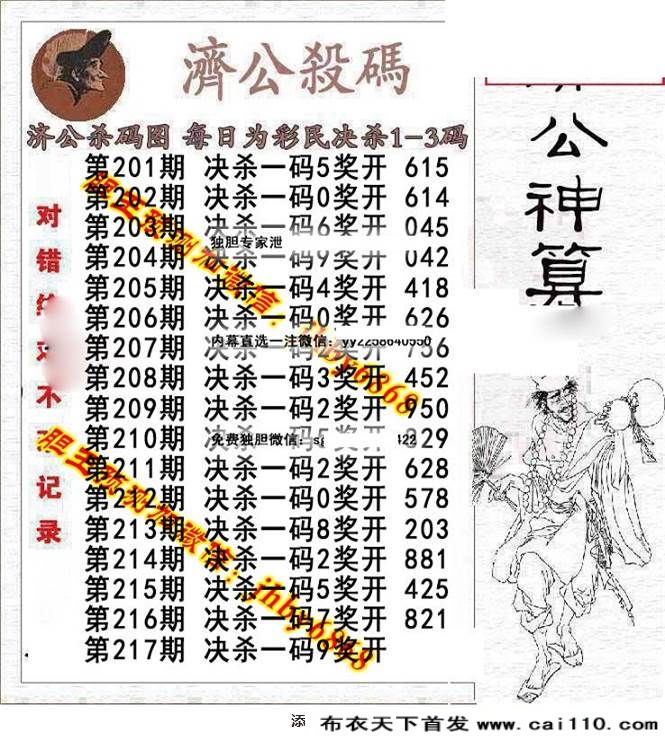 濟公殺碼
济公杀码图 每日为彩民决杀1-3码
第201期 决杀一码5奖开 615
第202期 决杀一码0奖开 614
第203期 决杀一码6奖开 045
独胆专家泄
第204期 决杀一码9奖开 042
第205期 决杀一码4奖开 418
第206期 决杀一码0奖开 626
内幕直选一注微信: yy2258640550
第207期 决杀一码 奖开 756
第208期 决杀一码3奖开 452
第209期 决杀一码2奖开 950
第210期 决杀一码 奖开 829
免费独胆微信: 422
第211期 决杀一码2奖开 628
第212期 决杀一码0奖开 578
第213期 决杀一码8奖开 203
第214期 决杀一码2奖开 881
第215期 决杀一码5奖开 425
第216期 决杀一码7奖开 821
第217期 决杀一码9奖开
对错 不 记录
胆王预测加微信: jhby6868
胆王预测加微信: jhby6868
公神算
添 布衣天下首发 www.cai110.com